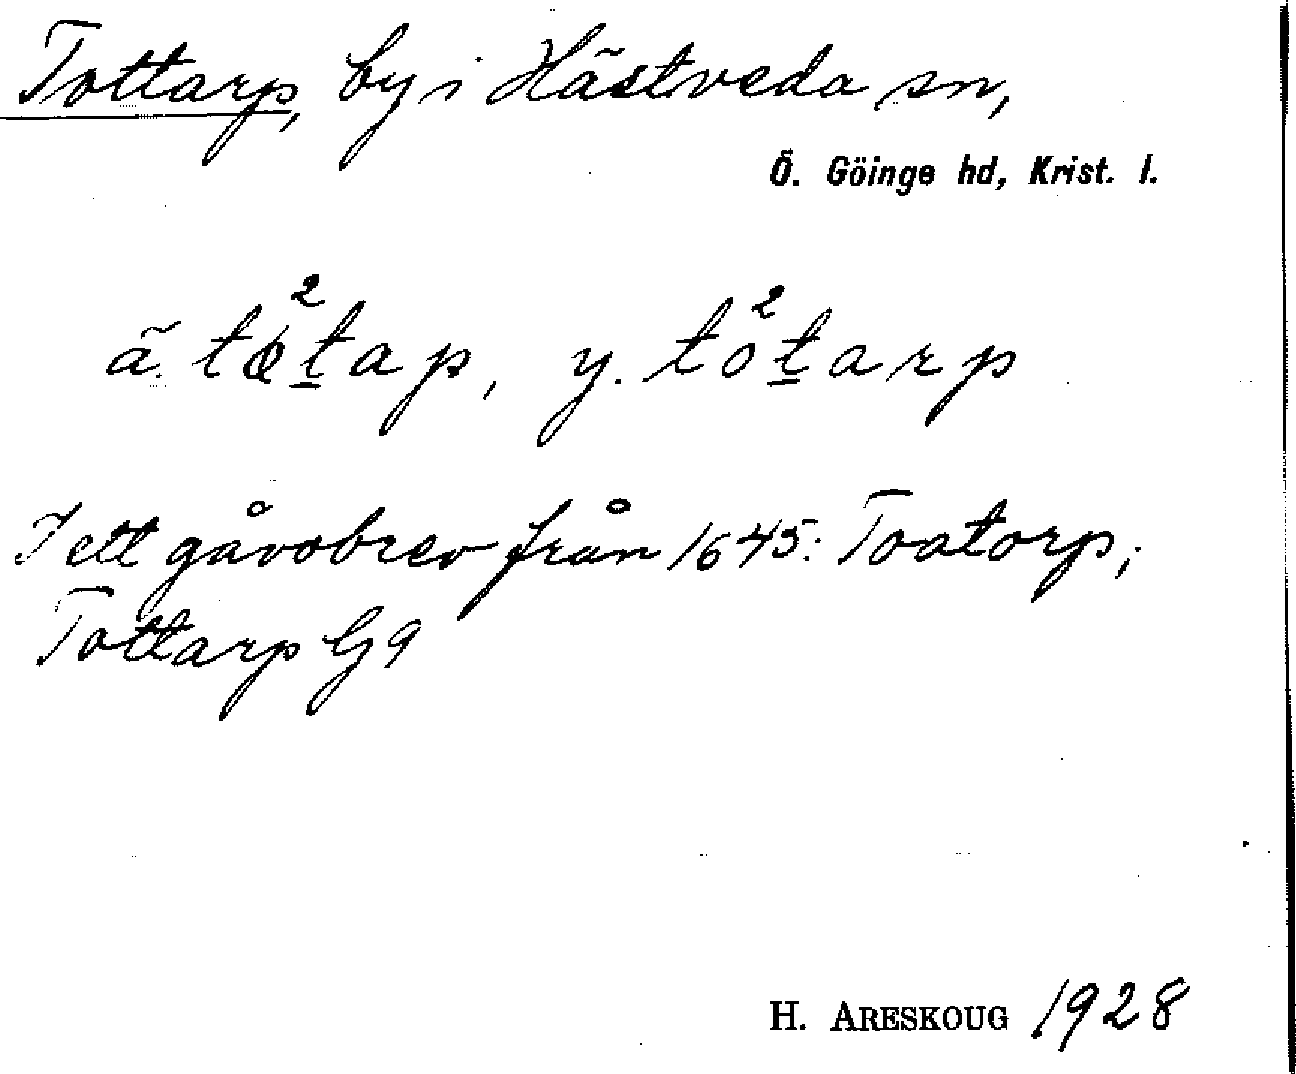 Tottarp, by i Hästveda sn,
Ö. Göinge hd, Krist. l.
ä. tꝋ²ṯap, y. to²ṯarp
I ett gåvobrev från 1645: Toatorp;
Tottarp G9
H. ARESKOUG 1928